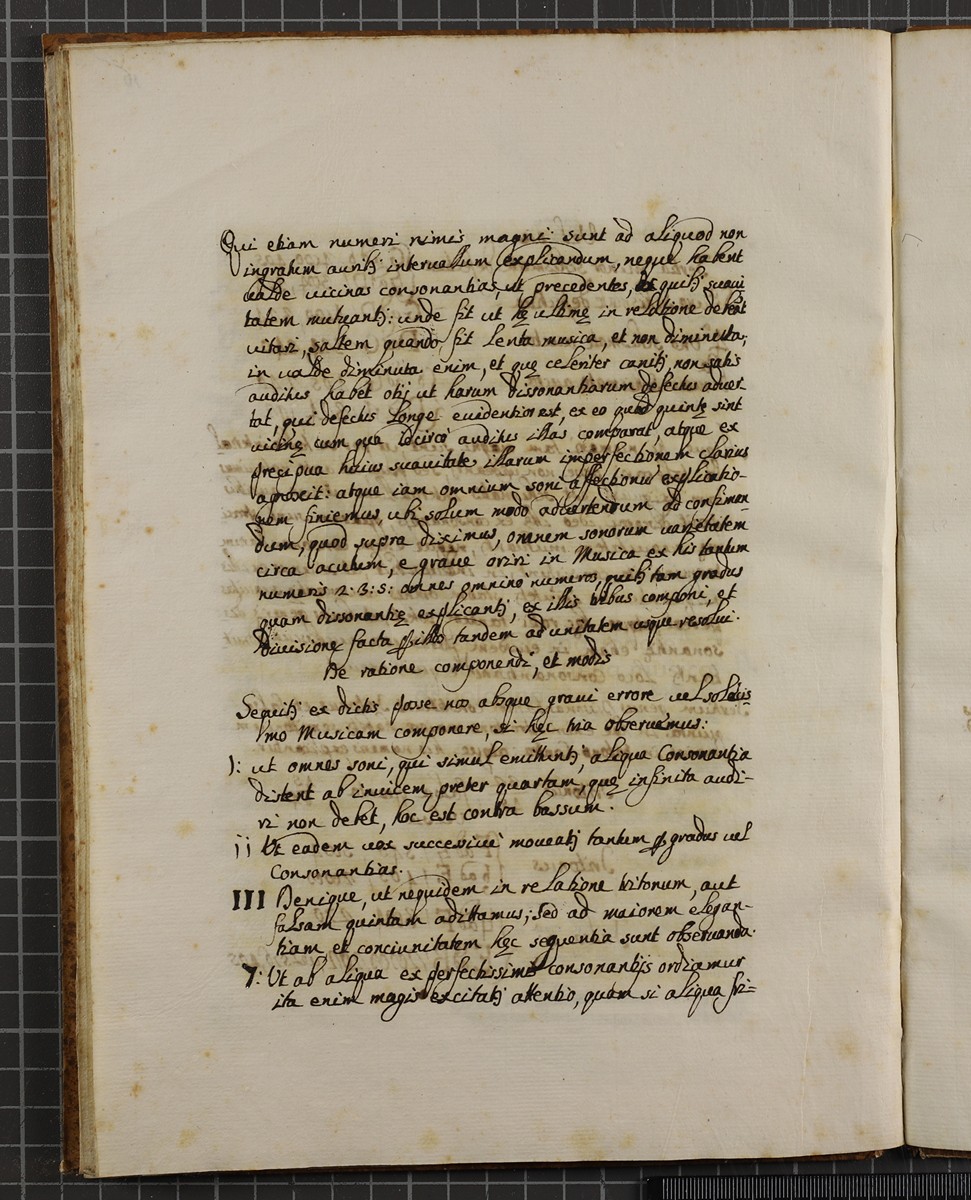 Qui etiam numeri nimis magni sunt ad aliquod non
ingratum auribꝫ interuallum explicandum, neque habent
ualde uicinas consonantias, ut precedentes, a quibꝫ suaui
tatem mutuantꝫ: unde fit ut hę ultimę in relatione debeāt
uitari, saltem quando fit lenta musica, et non diminuta;
in ualde diminuta enim, et quę celeriter canitꝫ, non satis
auditus habet otij ut harum dissonantiarum defectus aduer
tat, qui defectus longe euidentior est, ex eo quod quintę sint
uicinę cum qua idcirco auditus illas comparat, atque ex
precipua huius suauitate, illarum imperfectionem clarius
agnoscit: atque iam omnium soni affectionū explicatio-
nem finiemus, ubi solum modo aduertendum ad confirman
dum, quod supra diximus, omnem sonorum uarietatem
circa acutum, e graue oriri in Musica ex his tantum
numeris 2. 3. 5: omnes omnino numeros, quibꝫ tam gradus
quam dissonantię explicantꝫ, ex illis tribus componi, et
Diuisione facta ꝑ illos tandem ad unitatem usque resolui.
De ratione componendi, et modis
Sequitꝫ ex dictis posse nos absque graui errore uel solęcis
mo Musicam componere, si hęc tria obseruemus:
I: ut omnes soni, qui simul emittuntꝫ, aliqua Consonantia
distent ab inuicem preter quartam, quę infinita audi-
ri non debet, hoc est contra bassum.
ii Ut eadem uox successiue moueatꝫ tantum ꝑ gradus uel
Consonantias.
III Denique, ut nequidem in relatione tritonum, aut
falsam quintam adittamus; sed ad maiorem elegan-
tiam, et conciunitatem hęc sequentia sunt obseruanda.
I: Ut ab aliqua ex perfectissimis consonantijs ordiamur
ita enim magis excitatꝫ attentio, quam si aliqua fri=